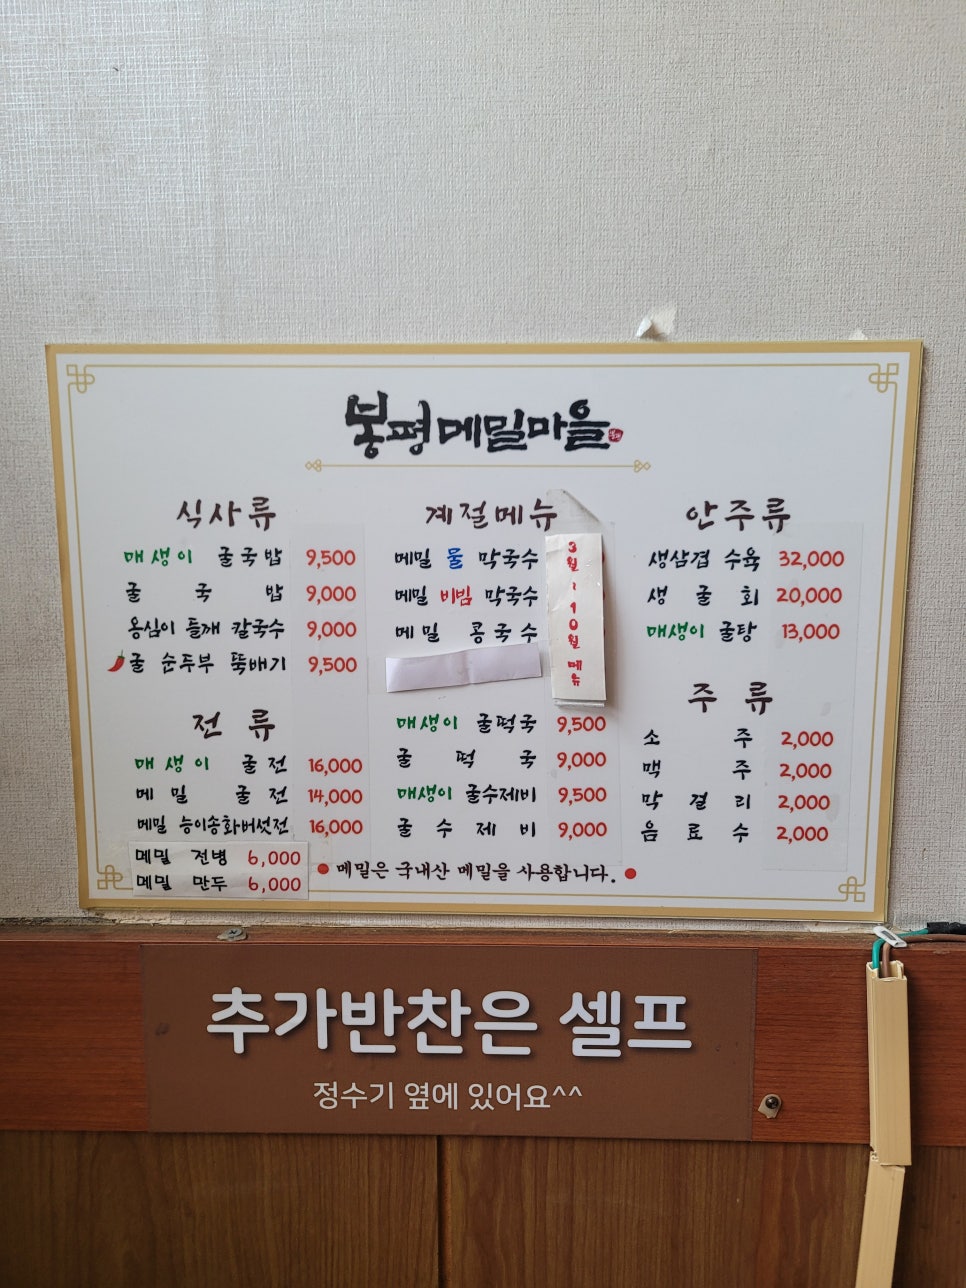 봉평메밀마을
식사류
매생이 굴국밥 9,500
굴국밥 9,000
옹심이 들깨 칼국수 9,000
굴 순두부 뚝배기 9,500
전류
매생이 굴전 16,000
메밀 굴전 14,000
메밀 능이송화버섯전 16,000
메밀 전병 6,000
메밀 만두 6,000
계절메뉴
메밀 물 막국수
메밀 비빔 막국수
메밀 콩국수
3월 ~ 10월 메뉴
매생이 굴떡국 9,500
굴떡국 9,000
매생이 굴수제비 9,500
굴수제비 9,000
● 메밀은 국내산 메밀을 사용합니다. ●
안주류
생삼겹 수육 32,000
생굴회 20,000
매생이 굴탕 13,000
주류
소주 2,000
맥주 2,000
막걸리 2,000
음료수 2,000
추가반찬은 셀프
정수기 옆에 있어요^^